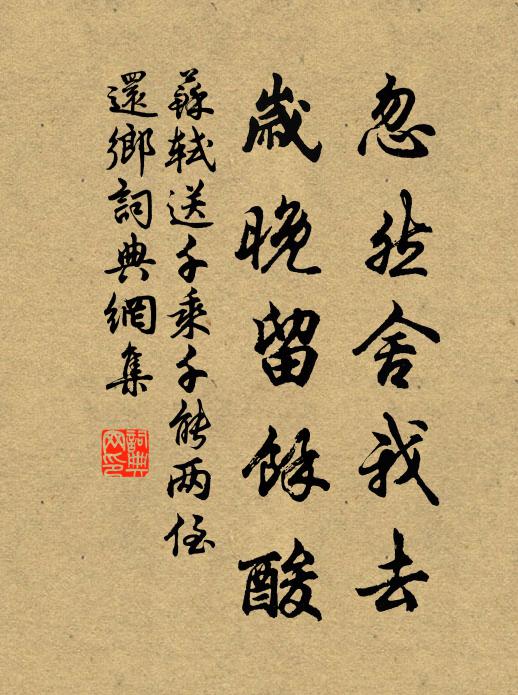 忽然舍我去
歲晚留餘酸
蘇軾送千乘千能兩侄
還鄉詞典網集
詞典
网印